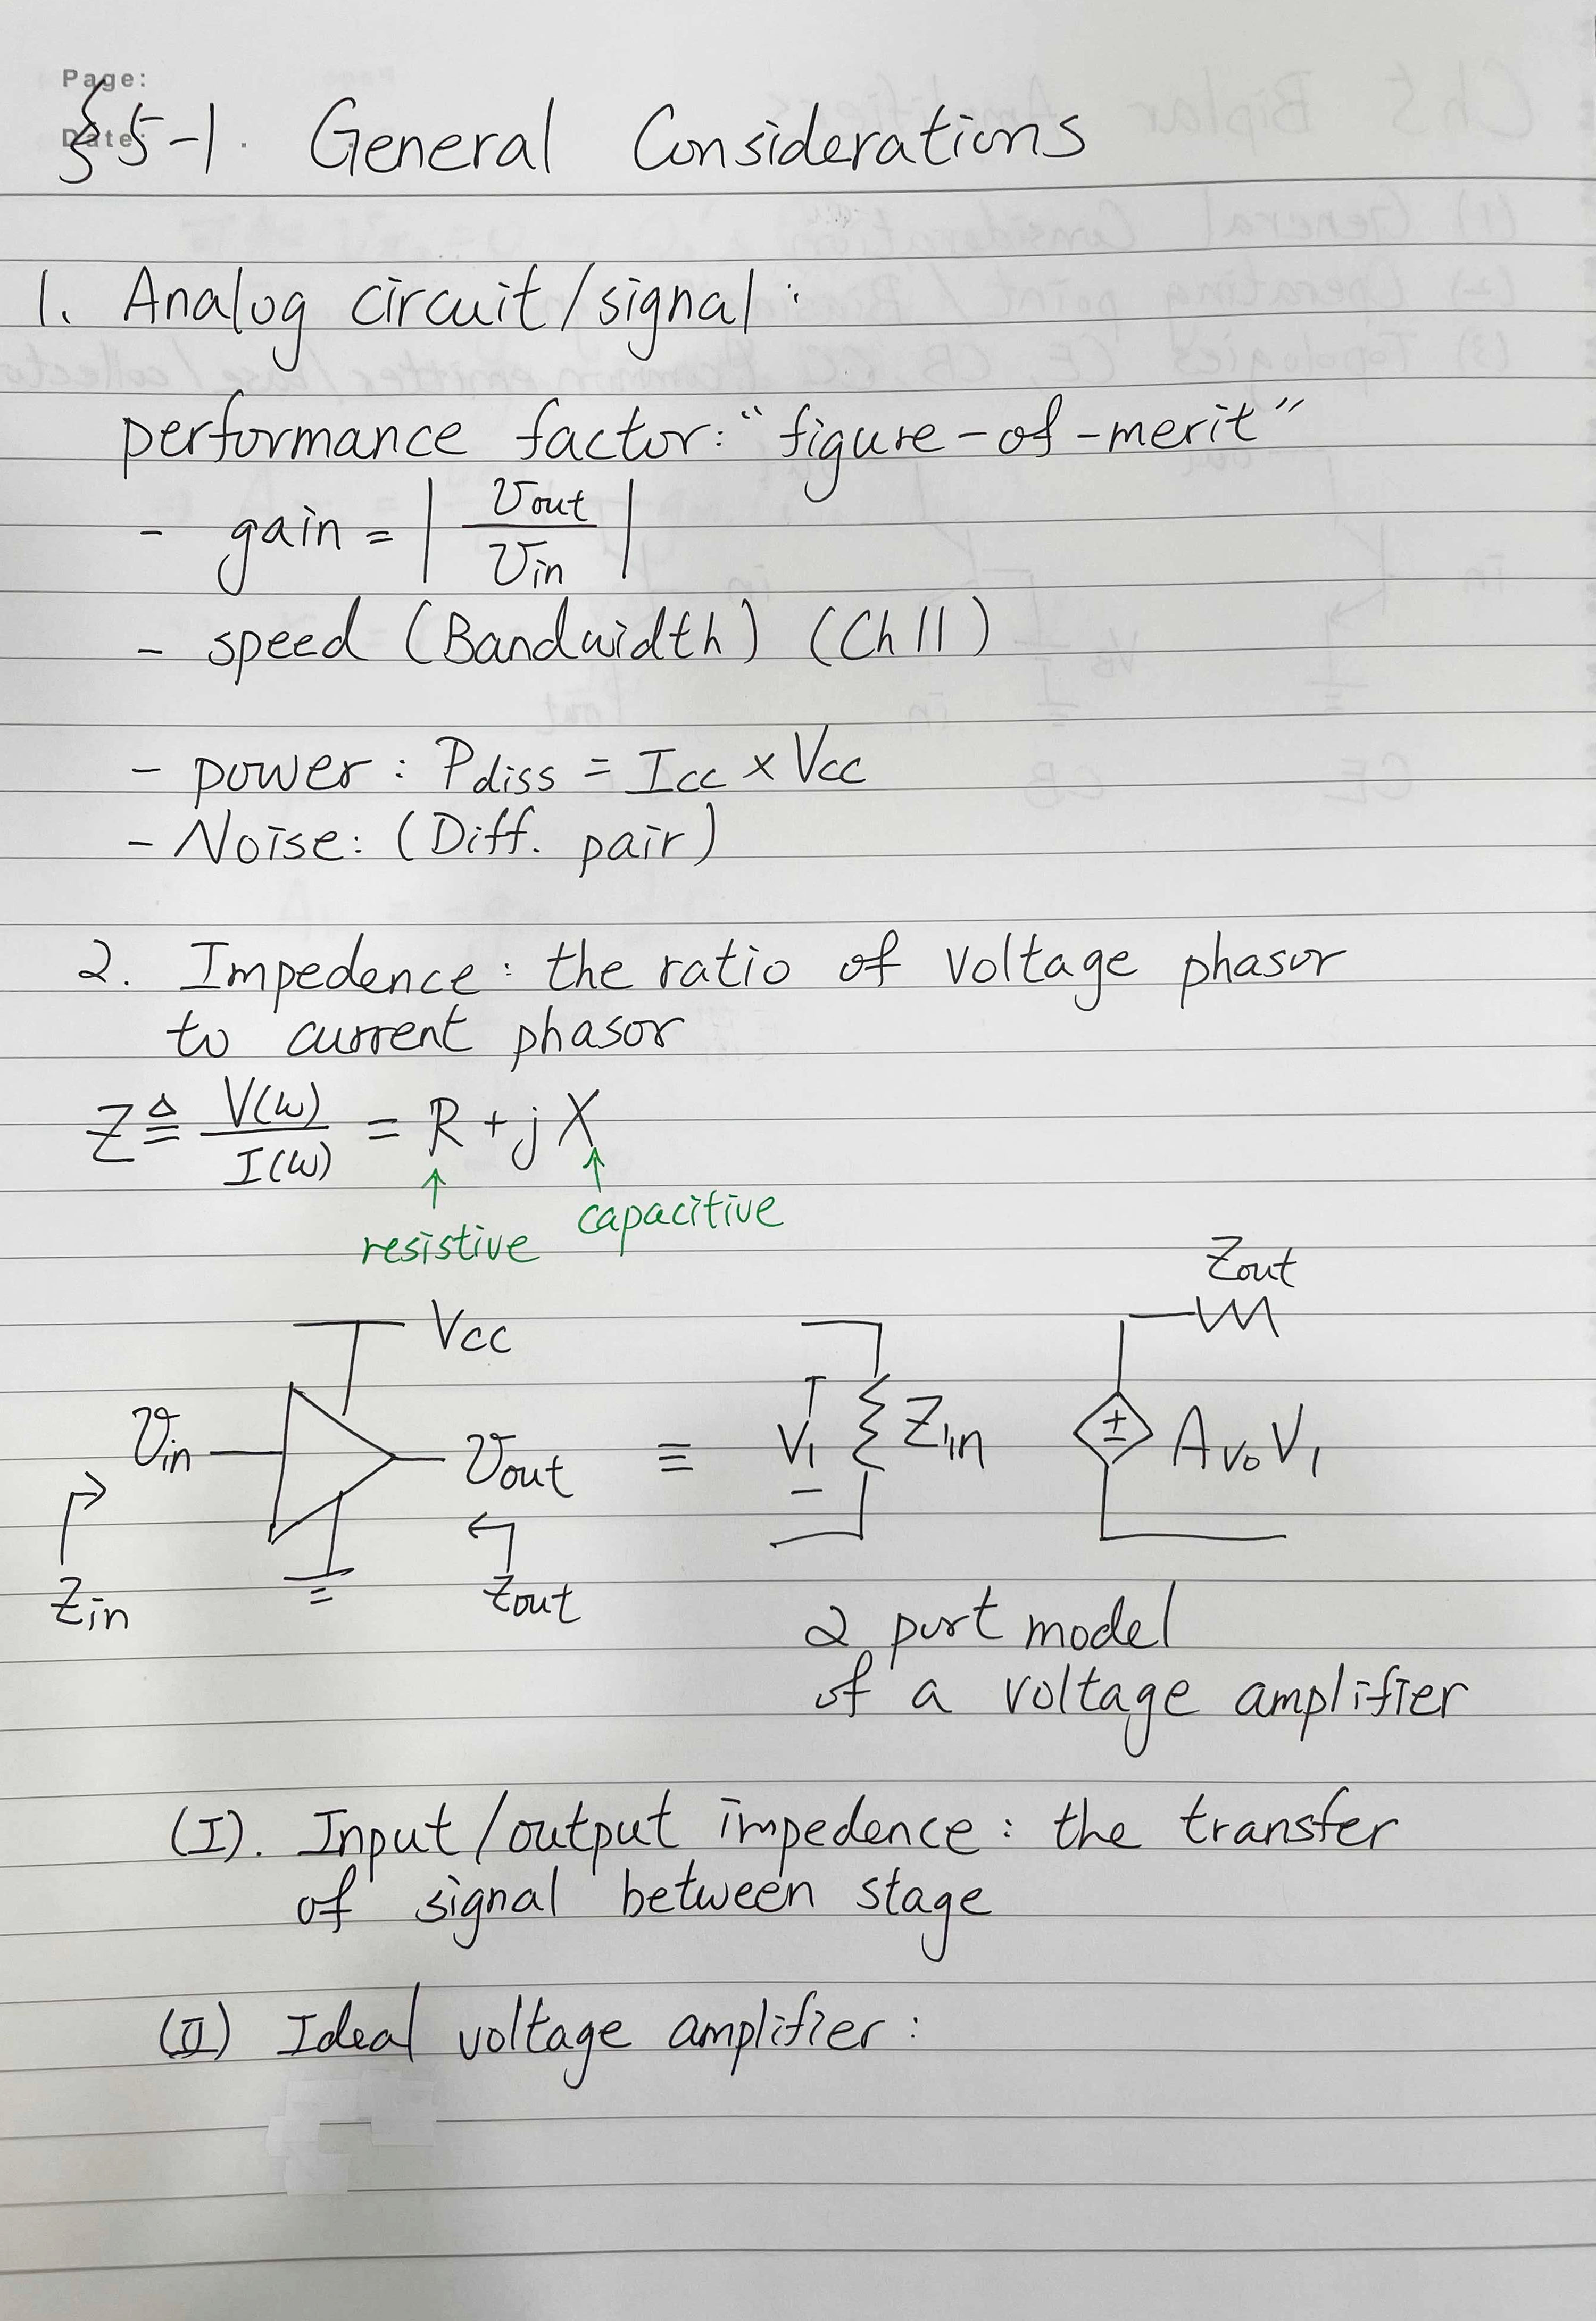 Page:
Date:
§5-1. General Considerations
1. Analog circuit/signal:
performance factor: "figure-of-merit"
- gain = | Vout / Vin |
- speed (Bandwidth) (Ch 11)
- power: Pdiss = Icc x Vcc
- Noise: (Diff. pair)
2. Impedence: the ratio of voltage phasor
to current phasor
Z ≜ V(ω) / I(ω) = R + jX
resistive
capacitive
Vcc
Vin
Vout
Zin
Zout
≡
+
V1
-
Zin
Zout
±
Avo V1
2 port model
of a voltage amplifier
(I). Input/output impedence: the transfer
of signal between stage
(II) Ideal voltage amplifier: